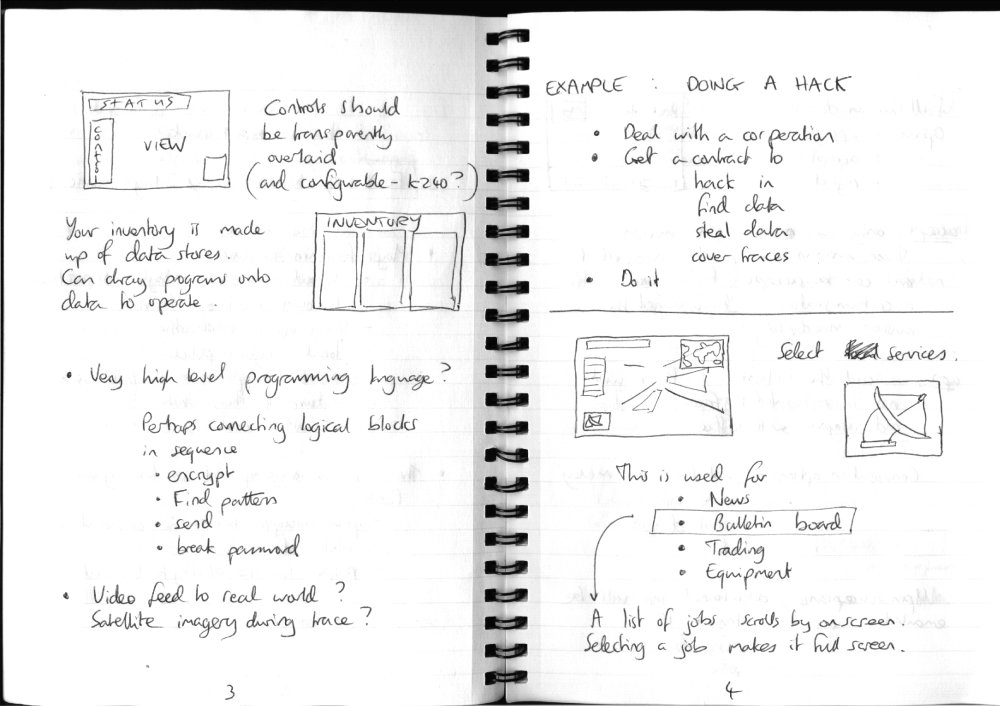 STATUS
CONTROL
VIEW
Controls should
be transparently
overlaid
(and configurable - K240?)
Your inventory is made
up of data stores.
Can drag programs onto
data to operate.
INVENTORY
• Very high level programming language?
Perhaps connecting logical blocks
in sequence
• encrypt
• Find pattern
• send
• break password
• Video feed to real world?
Satellite imagery during trace?
3
EXAMPLE : DOING A HACK
• Deal with a corporation
• Get a contract to
hack in
find data
steal data
cover traces
• Do it
Select services.
This is used for
• News
• Bulletin board
• Trading
• Equipment
A list of jobs scrolls by onscreen.
Selecting a job makes it full screen.
4